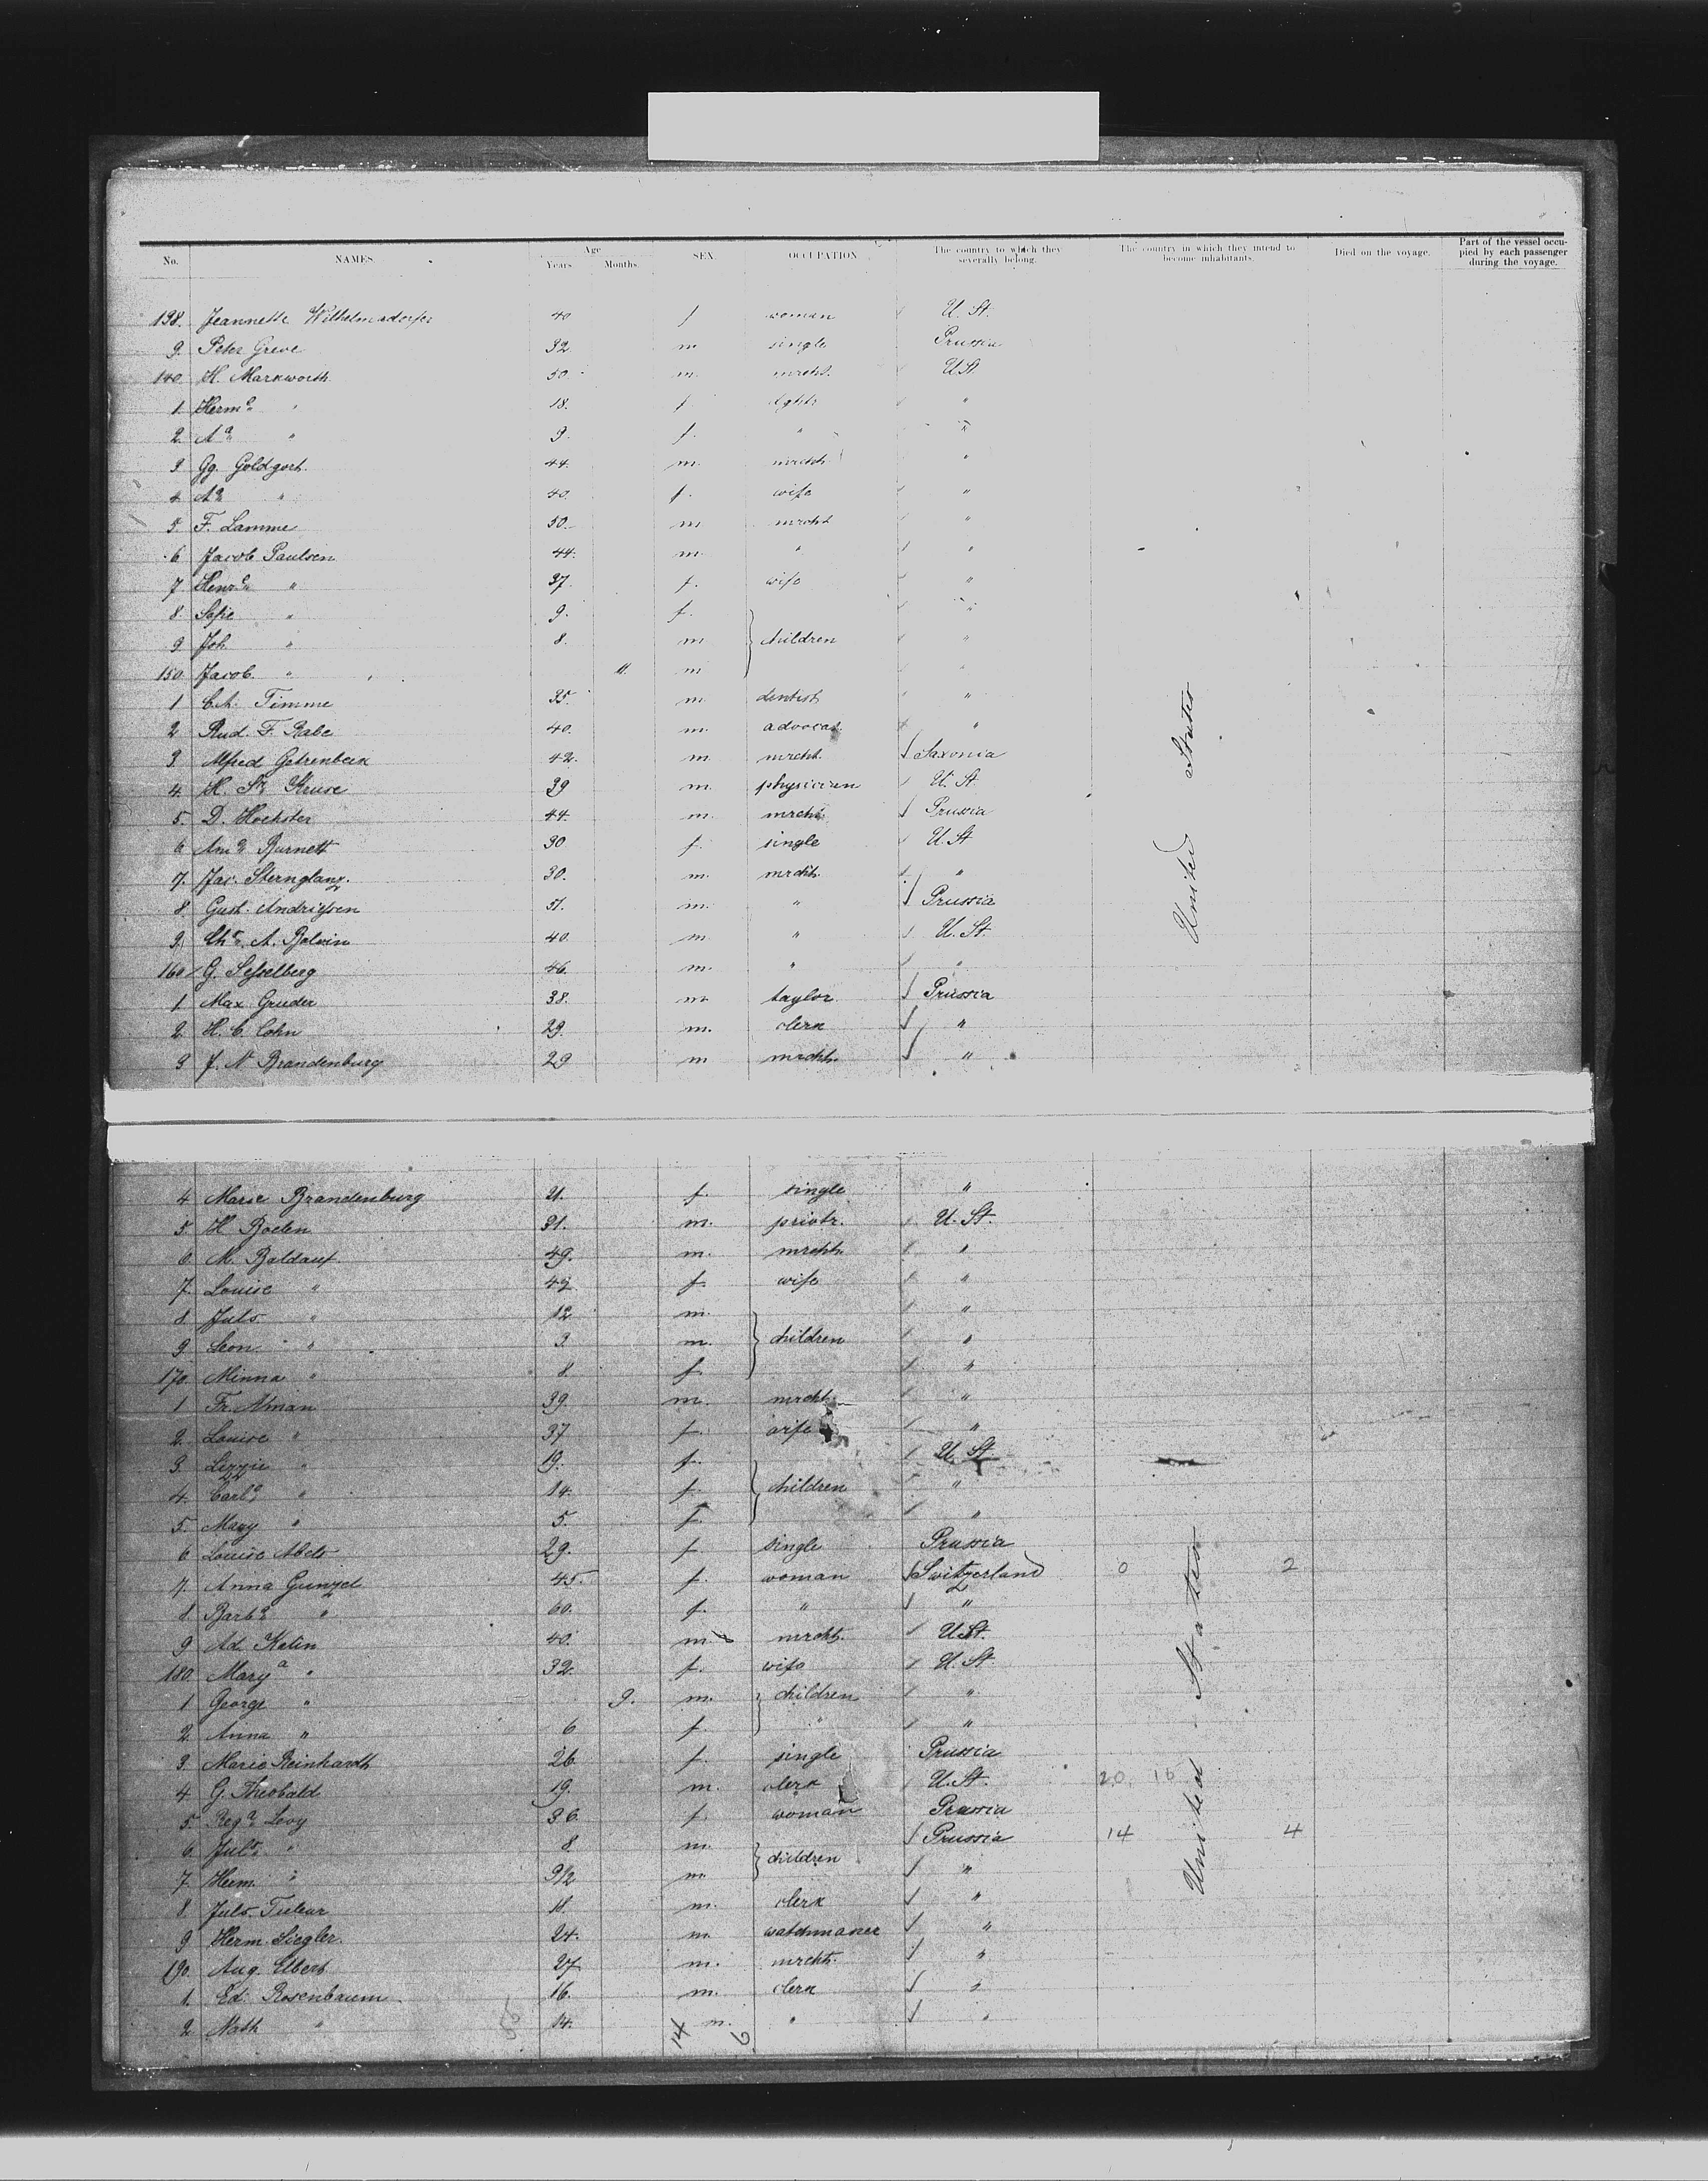 No. NAMES. Age Years. Months. SEX. OCCUPATION The country to which they severally belong. The country in which they intend to become inhabitants. Died on the voyage. Part of the vessel occupied by each passenger during the voyage.
138. Jeannette Wilhelmsdorfer 40 f woman U. St.
9. Peter Greve 32 m single Prussia
140. H. Markworth 50 m. mrcht. U St.
1. Herm.a " 18. f dghtr "
2. Aa " 9. f. " "
3 Gg. Goldgart 44. m. mrcht "
4 Aa " 40. f. wife "
5. F. Lamme 50. m mrcht "
6 Jacob Paulsen 44. m. " "
7 Henr.a " 37. f. wife "
8. Sofie " 9. f. "
9 Joh " 8. m children "
150. Jacob. " 11. m "
1 C.A. Timme 35. m. dentist "
2 Rud. F. Rabe 40. m. advocat. "
3. Alfred Gehrenbeck 42. m mrcht. Saxonia
4. H. Kruse 39 m. physician U. St.
5. D. Hochster 44. m. mrcht. Prussia
6 Am.a Burnett 30 f. single U. St
7. Jac. Sternglanz. 30. m. mrcht. "
8. Gust. Andriessen 51. m. " Prussia
9. Chr. A. Belvin 40. m " U. St.
160 G. Sesselberg 46. m. " "
1 Max Gruder 38. m taylor Prussia
2. H. C. Cohn 29. m. clerk "
3 J. N Brandenburg 29 m mrcht. "
United States
4 Marie Brandenburg 21. f. single "
5. H Roelen 31. m. privtr. U. St.
6. M. Baldauf. 49. m. mrcht. "
7. Louise " 42 f. wife "
8. Juls " 12 m. "
9. Leon " 3. m. children "
170. Minna " 8 f. "
1 Fr. Alman 39. m. mrcht. "
2. Louise " 37 f. wife "
3. Lizzie " 19. f. U. St
4. Carla " 14. f. children "
5. Mary " 5. f. "
6 Louise Abels 29. f. single Prussia
7. Anna Gunzel 45. f. woman Switzerland 0 2
8 Barb.a " 60. f. " "
9 Ad. Kelin 40. m mrcht. U. St.
180. Mary a " 32. f. wife U. St.
1 George " 9. m. children "
2. Anna " 6 f. "
3. Marie Reinhardt 26. f. single Prussia
4. G. Theobald 19. m. clerk U. St. 20 16
5. Reg.a Levy 36. f. woman Prussia
6. Jul.s " 8 m. Prussia 14 4
7. Herm. " 3 1/2 m. children "
8. Juls. Tuteur 18. m. clerk "
9 Herm. Siegler. 24. m. watchmaker "
190. Aug. Elbert 27 m. mrcht. "
1. Ed. Rosenbaum 16. m. clerk "
2 Nath " 14. m. " "
United States
14 6